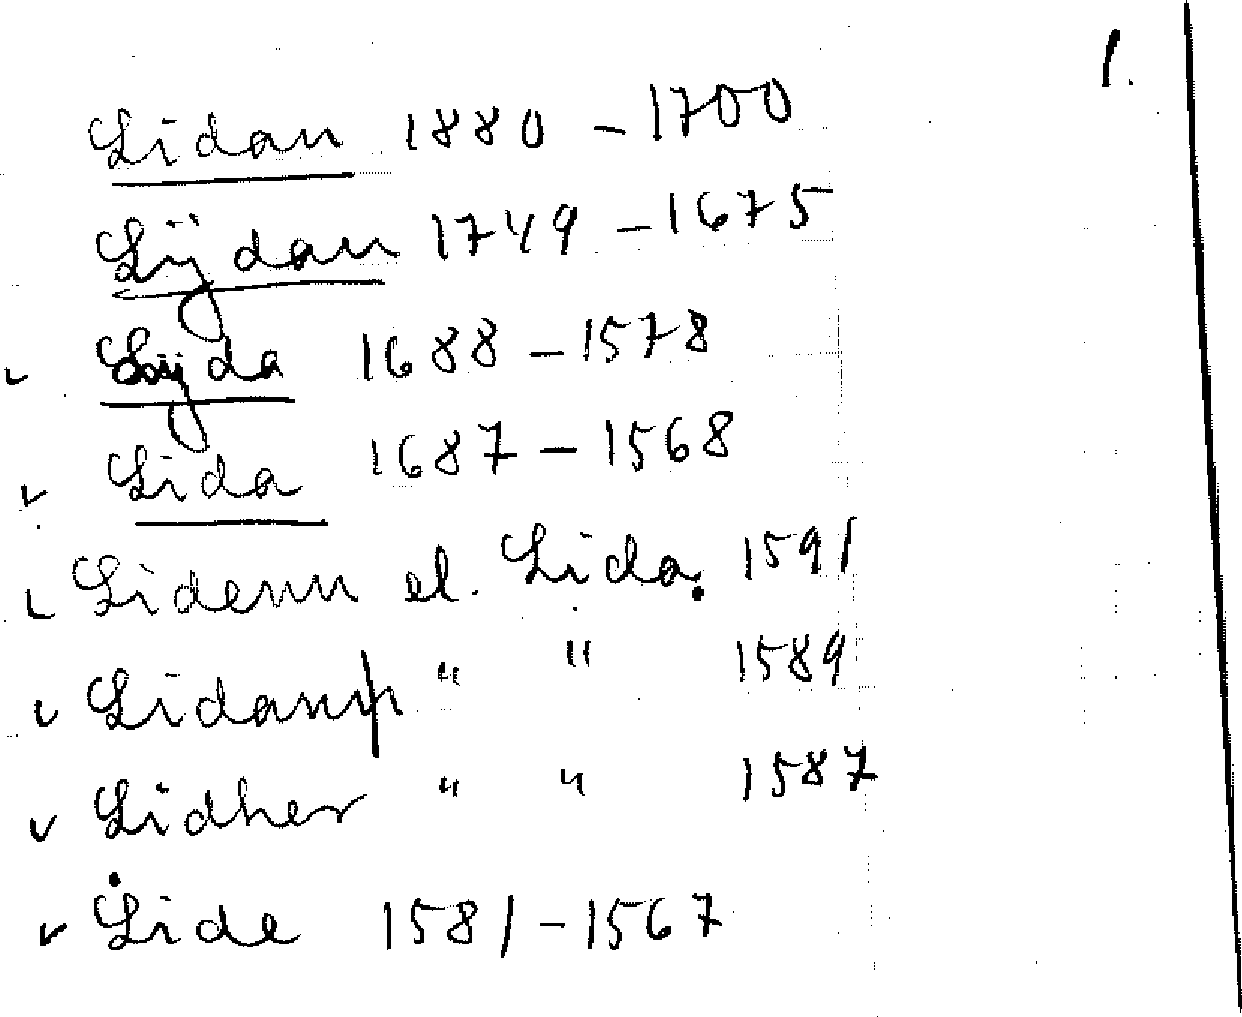 1.
Lidan 1880 - 1700
Lijdan 1749 - 1675
v Lijda 1688 - 1578
v Lida 1687 - 1568
v Lidenn el. Lida. 1591
v " " 1589
v Lidher " " 1587
v Lide 1581 - 1567